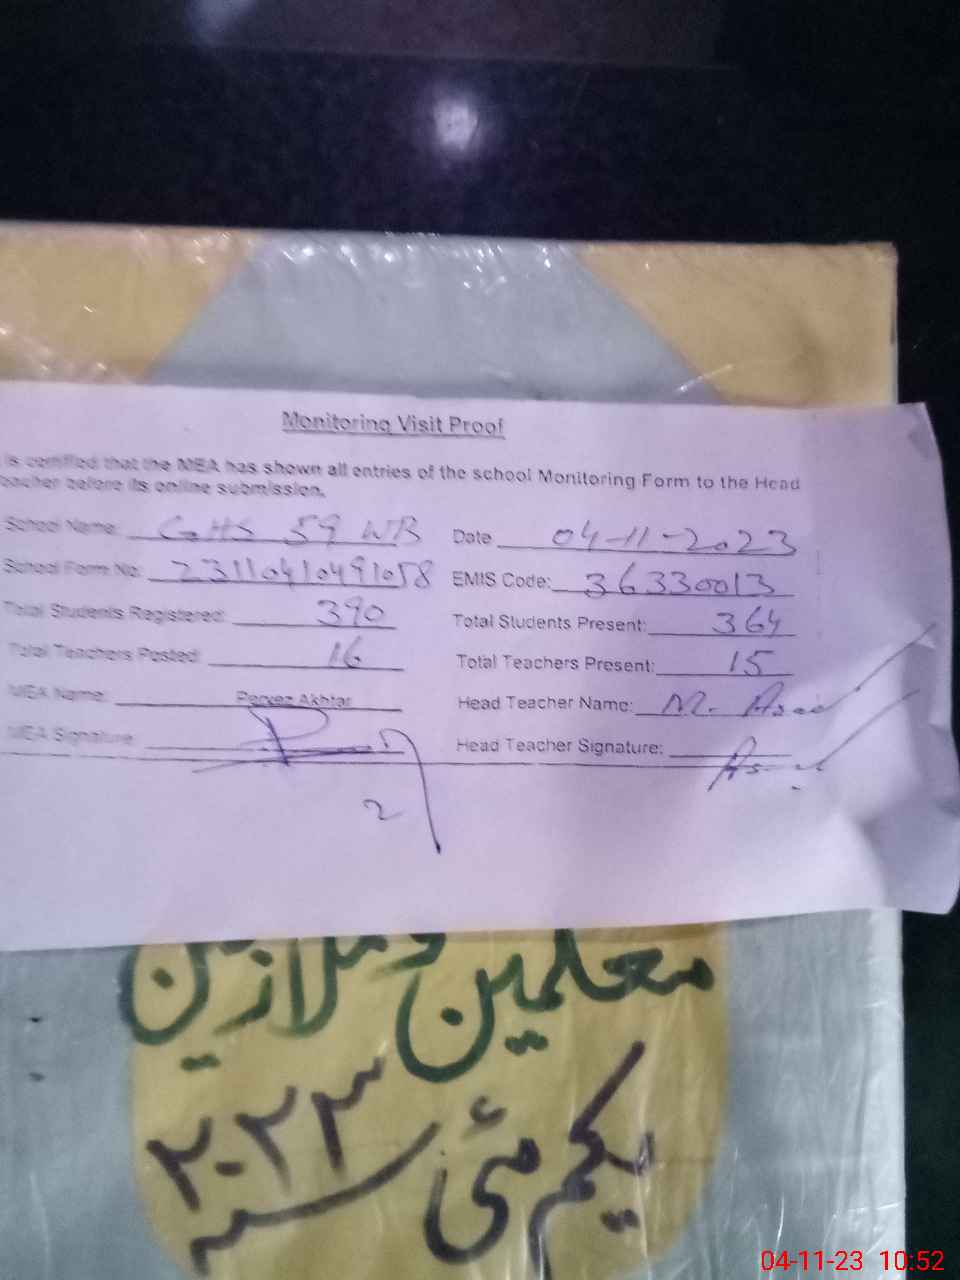 Monitoring Visit Proof
is certified that the MEA has shown all entries of the school Monitoring Form to the Head
eacher before its online submission.
School Name: GHS 59 WB Date 04-11-2023
School Form No: 23110410491058 EMIS Code: 36330013
Total Students Registered: 390 Total Students Present: 364
Total Teachers Posted: 16 Total Teachers Present: 15
MEA Name: Pervez Akhtar Head Teacher Name: M.
MEA Signature: Head Teacher Signature:
2
معلمین و ملازمین
یکم مئی سنہ ۲۰۲۳
04-11-23 10:52